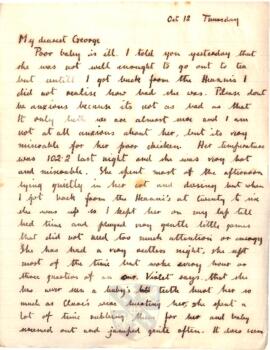 Oct 12 Thursday
My dearest George
Poor baby is ill. I told you yesterday that
she was not well enough to go out to tea
but untill I got back from the I
did not realise how bad she was. Please dont
be anxious because its not as bad as that
It only teeth we are almost sure and I am
not at all anxious about her, but its very
miserable for her poor chicken. Her temperature
was 102.2 last night and she was very hot
and miserable. She spent most of the afternoon
lying quietly in her cot and dozing but when
I got back from the at twenty to six
she was up so I kept her on my lap till
bed time and played very gentle little games
that did not need too much attention or energy
She has had a very restless night. She slept
most of the time but woke every hour or
three quarters of an our. Violet says that she
has never seen a baby's teeth hurt her so
much as Clare's was hurting her, she spent a
lot of time rubbing it for her and baby
moaned out and jumped quite often. It does seem